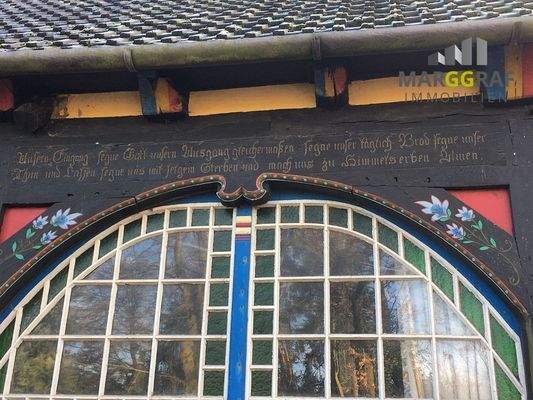 MARGGRAF
IMMOBILIEN
Unsern Eingang segne Gott unsern Ausgang gleichermaßen segne unser täglich Brod segne unser
Thun und Lassen segne uns mit selgem Sterben und mach uns zu Himmels erben Amen